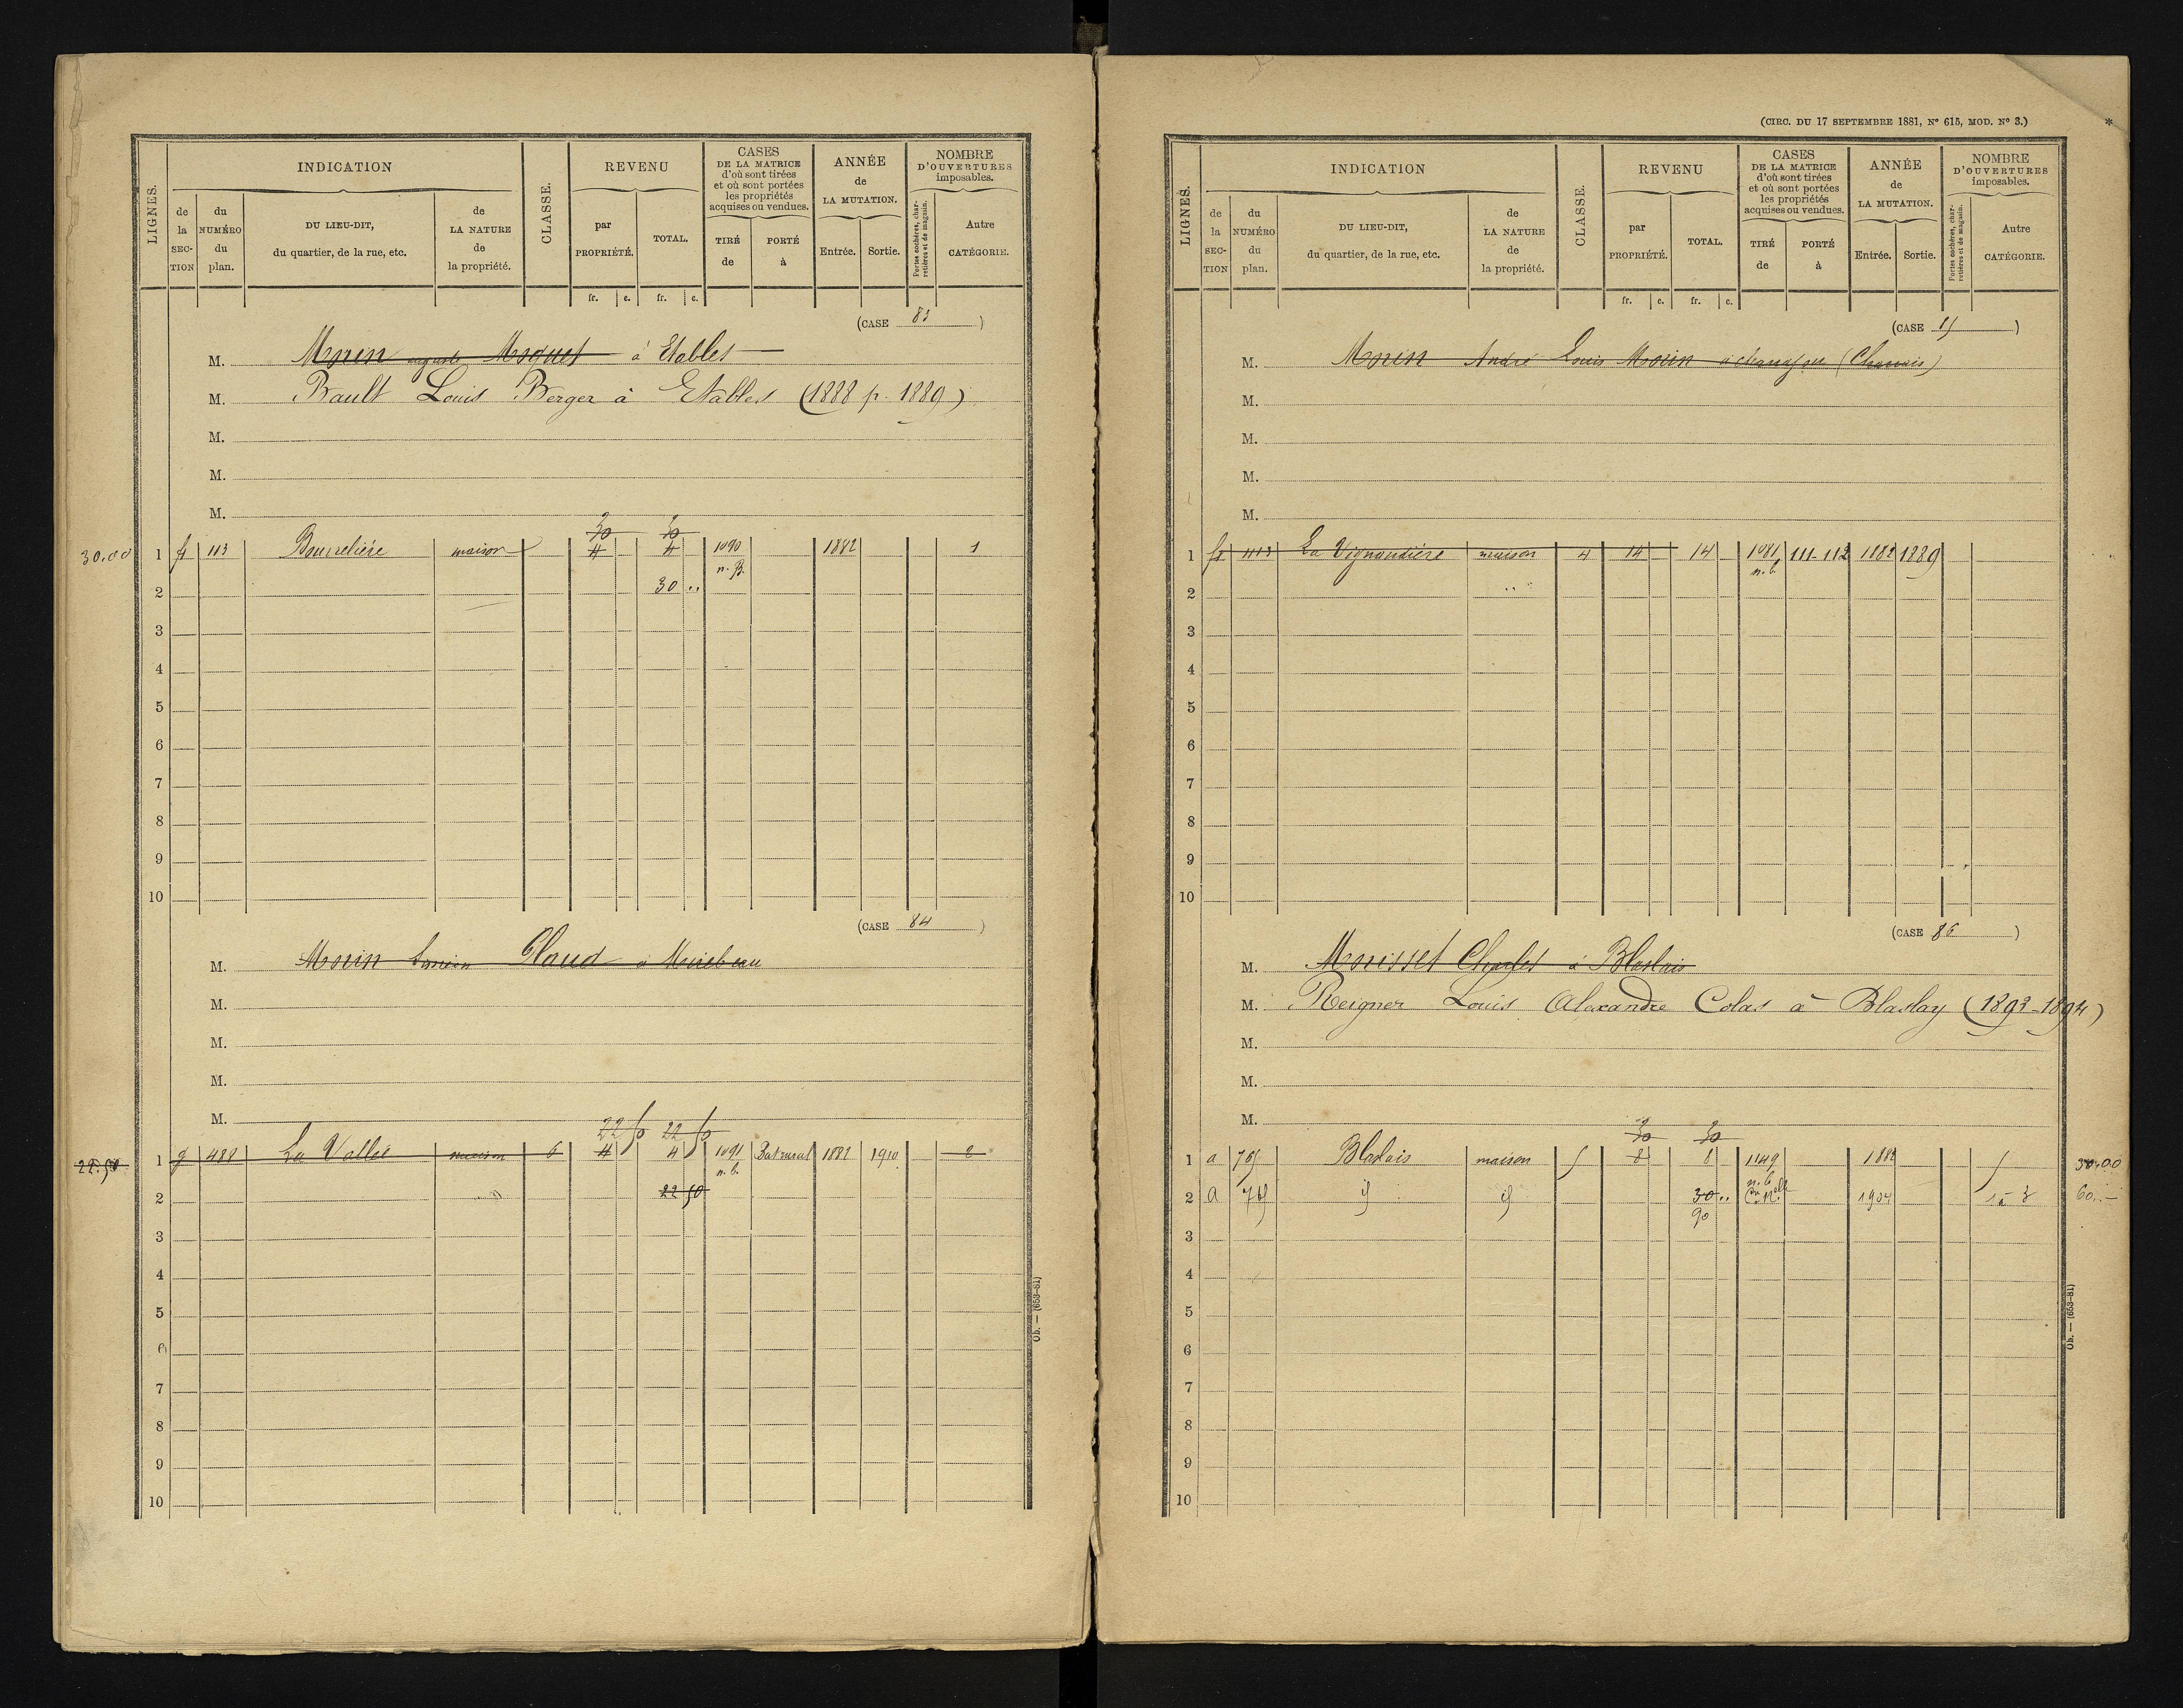 LIGNES.
INDICATION
de la SECTION
du NUMÉRO du plan.
DU LIEU-DIT, du quartier, de la rue, etc.
de LA NATURE de la propriété.
CLASSE.
REVENU
par PROPRIÉTÉ.
TOTAL.
CASES DE LA MATRICE d'où sont tirées et où sont portées les propriétés acquises ou vendues.
TIRÉ de
PORTÉ à
ANNÉE de LA MUTATION.
Entrée.
Sortie.
NOMBRE D'OUVERTURES imposables.
Portes cochères, charretières et de magasin.
Autre CATÉGORIE.
fr. c. fr. c.
(CASE 83)
M. Morin auguste Moquet à Etables
M. Bault Louis Berger à Etables (1888 p. 1889)
M.
M.
M.
30 30
30.00 1 113 Bourrelière maison 4 4 1090 1882 1
n. B.
2 30 ..
3
4
5
6
7
8
9
10
(CASE 84)
M. Morin Glaud à Mirebeau
M.
M.
M.
M.
22 50 22 50
22.50 1 g 488 La Vallée maison 6 4 4 1091 Bat rural 1882 1910 2
n. b.
2 22 50
3
4
5
6
7
8
9
10
Ob. — (653-81)
(CIRC. DU 17 SEPTEMBRE 1881, N° 615, MOD. N° 3.)
*
LIGNES.
INDICATION
de la SECTION
du NUMÉRO du plan.
DU LIEU-DIT, du quartier, de la rue, etc.
de LA NATURE de la propriété.
CLASSE.
REVENU
par PROPRIÉTÉ.
TOTAL.
CASES DE LA MATRICE d'où sont tirées et où sont portées les propriétés acquises ou vendues.
TIRÉ de
PORTÉ à
ANNÉE de LA MUTATION.
Entrée.
Sortie.
NOMBRE D'OUVERTURES imposables.
Portes cochères, charretières et de magasin.
Autre CATÉGORIE.
fr. c. fr. c.
(CASE )
M. Morin André Louis Morin (Charrais)
M.
M.
M.
M.
1 413 La Vignaudière maison 4 14 14 1081 111-112 1882 1889
n. b.
2
3
4
5
6
7
8
9
10
(CASE 86)
M. Morisset Charles à Blaslais
M. Reigner Louis Alexandre Colas à Blaslay (1893-1894)
M.
M.
M.
30 30
1 a Blaslais maison 5 8 8 1149 1882 5 30.00
n. b.
2 a 30 .. 1904 60. —
90
3
4
5
6
7
8
9
10
Ob. — (653-81)